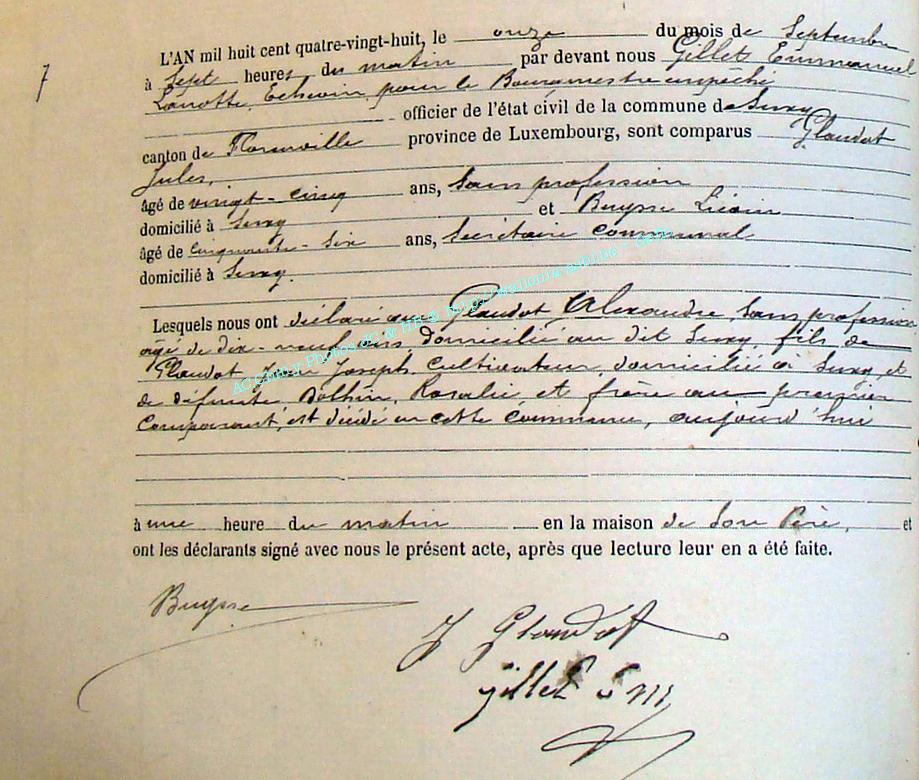 7
L'AN mil huit cent quatre-vingt-huit, le onze du mois de Septembre
à Sept heures du matin par devant nous Gillet Emmanuel
Lanotte, Echevin pour le Bourgmestre empêché
officier de l'état civil de la commune de Suxy
canton de Florenville province de Luxembourg, sont comparus Glaudot
Jules,
âgé de vingt-cinq ans, Sans profession
domicilié à Suxy et Buysse Liévin
âgé de Cinquante-Six ans, Secrétaire Communal
domicilié à Suxy.
Lesquels nous ont déclaré que Glaudot Alexandre, Sans profession
âgé de dix-neuf ans domicilié au dit Suxy, fils de
Glaudot Jean Joseph, Cultivateur, domicilié à Suxy, et
de défunte Dothin, Rosalie, et frère au premier
Comparant, est décédé en cette commune, aujourd'hui
à une heure du matin en la maison de Son Père, et
ont les déclarants signé avec nous le présent acte, après que lecture leur en a été faite.
Buysse
J Glaudot
Gillet Em